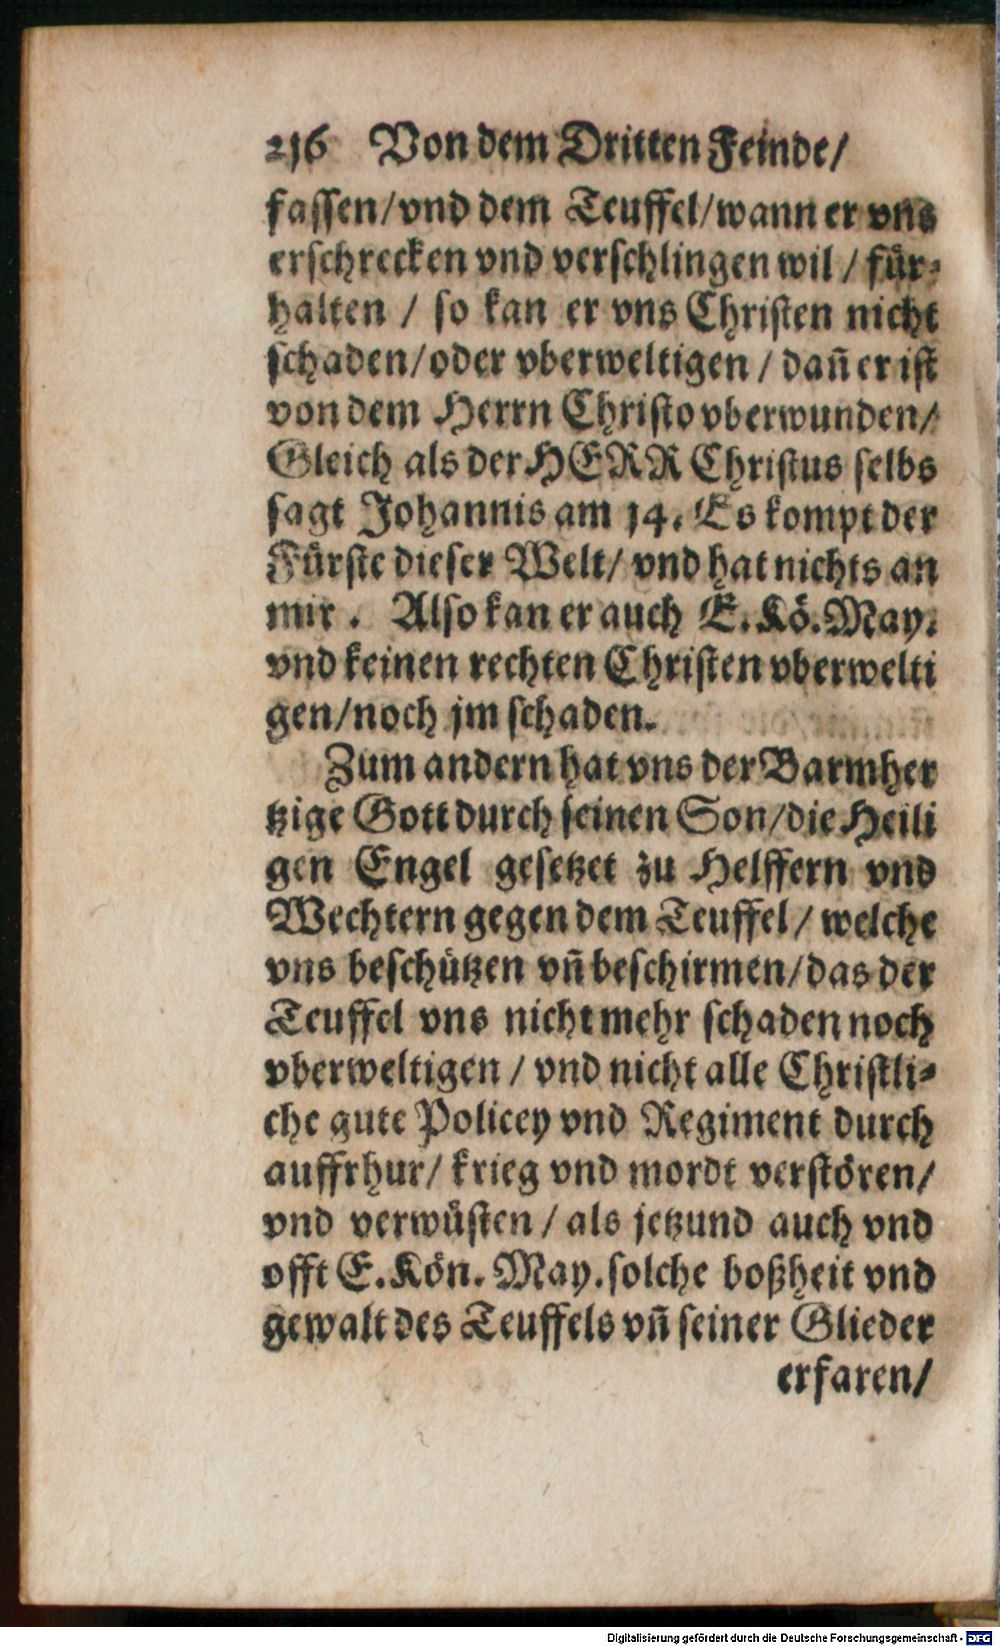 216 Von dem Dritten Feinde/
fassen/vnd dem Teuffel/wann er vns
erschrecken vnd verschlingen wil / für-
halten / so kan er vns Christen nicht
schaden/oder vberweltigen / dañ er ist
von dem Herrn Christo vberwunden/
Gleich als der HERR Christus selbs
sagt Johannis am 14. Es kompt der
Fürste dieser Welt/ vnd hat nichts an
mir . Also kan er auch E. Kö. May.
vnd keinen rechten Christen vberwelti
gen/noch jm schaden.
Zum andern hat vns der Barmher
tzige Gott durch seinen Son/die Heili
gen Engel gesetzet zu Helffern vnd
Wechtern gegen dem Teuffel / welche
vns beschützen vñ beschirmen/das der
Teuffel vns nicht mehr schaden noch
vberweltigen / vnd nicht alle Christli-
che gute Policey vnd Regiment durch
auffrhur/ krieg vnd mordt verstören/
vnd verwüsten / als jetzund auch vnd
offt E. Kön. May. solche boßheit vnd
gewalt des Teuffels vñ seiner Glieder
erfaren/
Digitalisierung gefördert durch die Deutsche Forschungsgemeinschaft - DFG